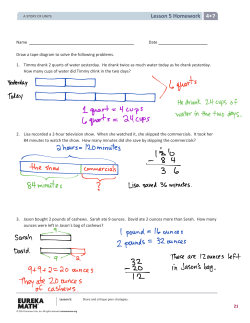 A STORY OF UNITS
Lesson 5 Homework 4•7
Name
Date
Draw a tape diagram to solve the following problems.
1. Timmy drank 2 quarts of water yesterday. He drank twice as much water today as he drank yesterday.
How many cups of water did Timmy drink in the two days?
6 quarts
Yesterday
Today
He drank 24 cups of
water in the two days.
1 quart = 4 cups
6 quarts = 24 cups
2. Lisa recorded a 2-hour television show. When she watched it, she skipped the commercials. It took her
84 minutes to watch the show. How many minutes did she save by skipping the commercials?
2 hours = 120 minutes
the show
commercials
84 minutes
?
- 84
36
Lisa saved 36 minutes.
3. Jason bought 2 pounds of cashews. Sarah ate 9 ounces. David ate 2 ounces more than Sarah. How many
ounces were left in Jason's bag of cashews?
Sarah
David
9
2
1 pound = 16 ounces
2 pounds = 32 ounces
9+9+2=20 ounces
They ate 20 ounces
of cashews
32
- 20
12
There are 12 ounces left
in Jason's bag.
EUREKA
MATH
Lesson 5:
Share and critique peer strategies.
21